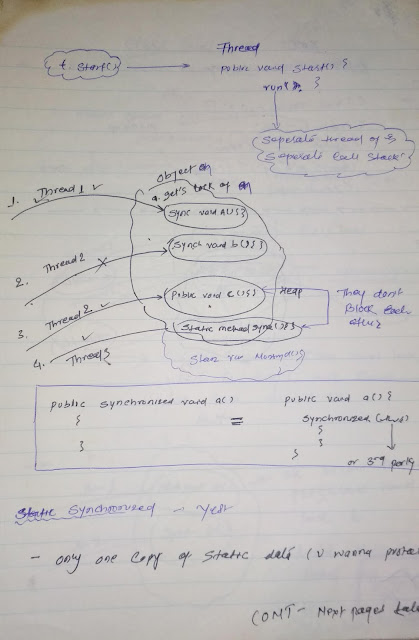 Thread
t. start()
public void start() {
run();
}
Seperate thread of &
Seperate Call Stack
Object
a. get's lock of
1. Thread 1 ✓
Sync void A(){}
2. Thread2 ✗
Synch void b(){}
3. Thread 2 ✓
Public void c(){}
Heap
They don't
Block Each
other
4. Thread3 ✓
Static method sync(){}
public synchronized void a()
{
}
=
public void a(){
Synchronized (this)
{
}
}
or 3rd party
Static Synchronized - Yes
- only one copy of static data (U wanna protec
(CONT - Next pages